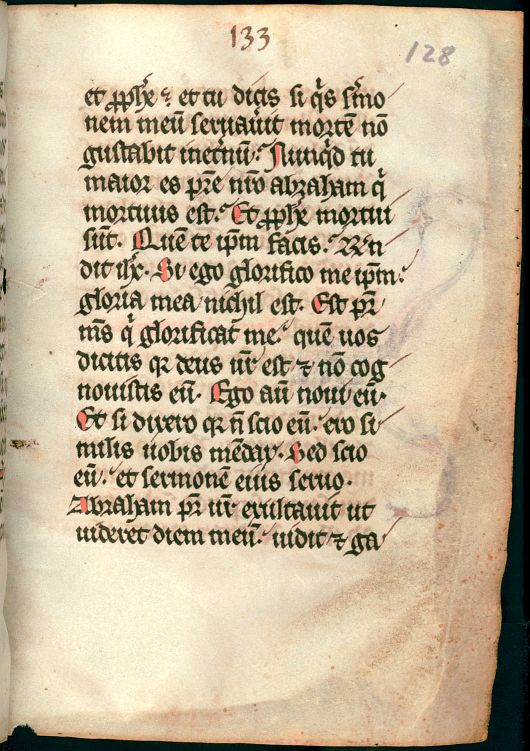 133
128
et ꝓph̄e ⁊ et tu dicis si q̇s ẜmo
nem meū seruau̇it mortē nō
gustabit inet̄nū. Nunq̇d tu
maior es pr̄e nr̄o abraham q̇
mortuus est. Et ꝓph̄e mortui
sūt. Quē te ip̄m facis. Rn̄
dit ih̄c. Si ego glorifico me ip̄m.
gloria mea nichil est. Est pr̄
m̄s q̇ glorificat̄ me. quē uos
dicitis qꝛ deus ur̄ est ⁊ nō cog
nouistis eū. Ego aū noui eū.
Et si dixero qꝛ n̄ scio eū. ero si
milis uobis mēdax. Sed scio
eū. et sermonē eius seruo.
Abraham pr̄ ur̄ exultauit ut
uideret diem meū. uidit ⁊ ga